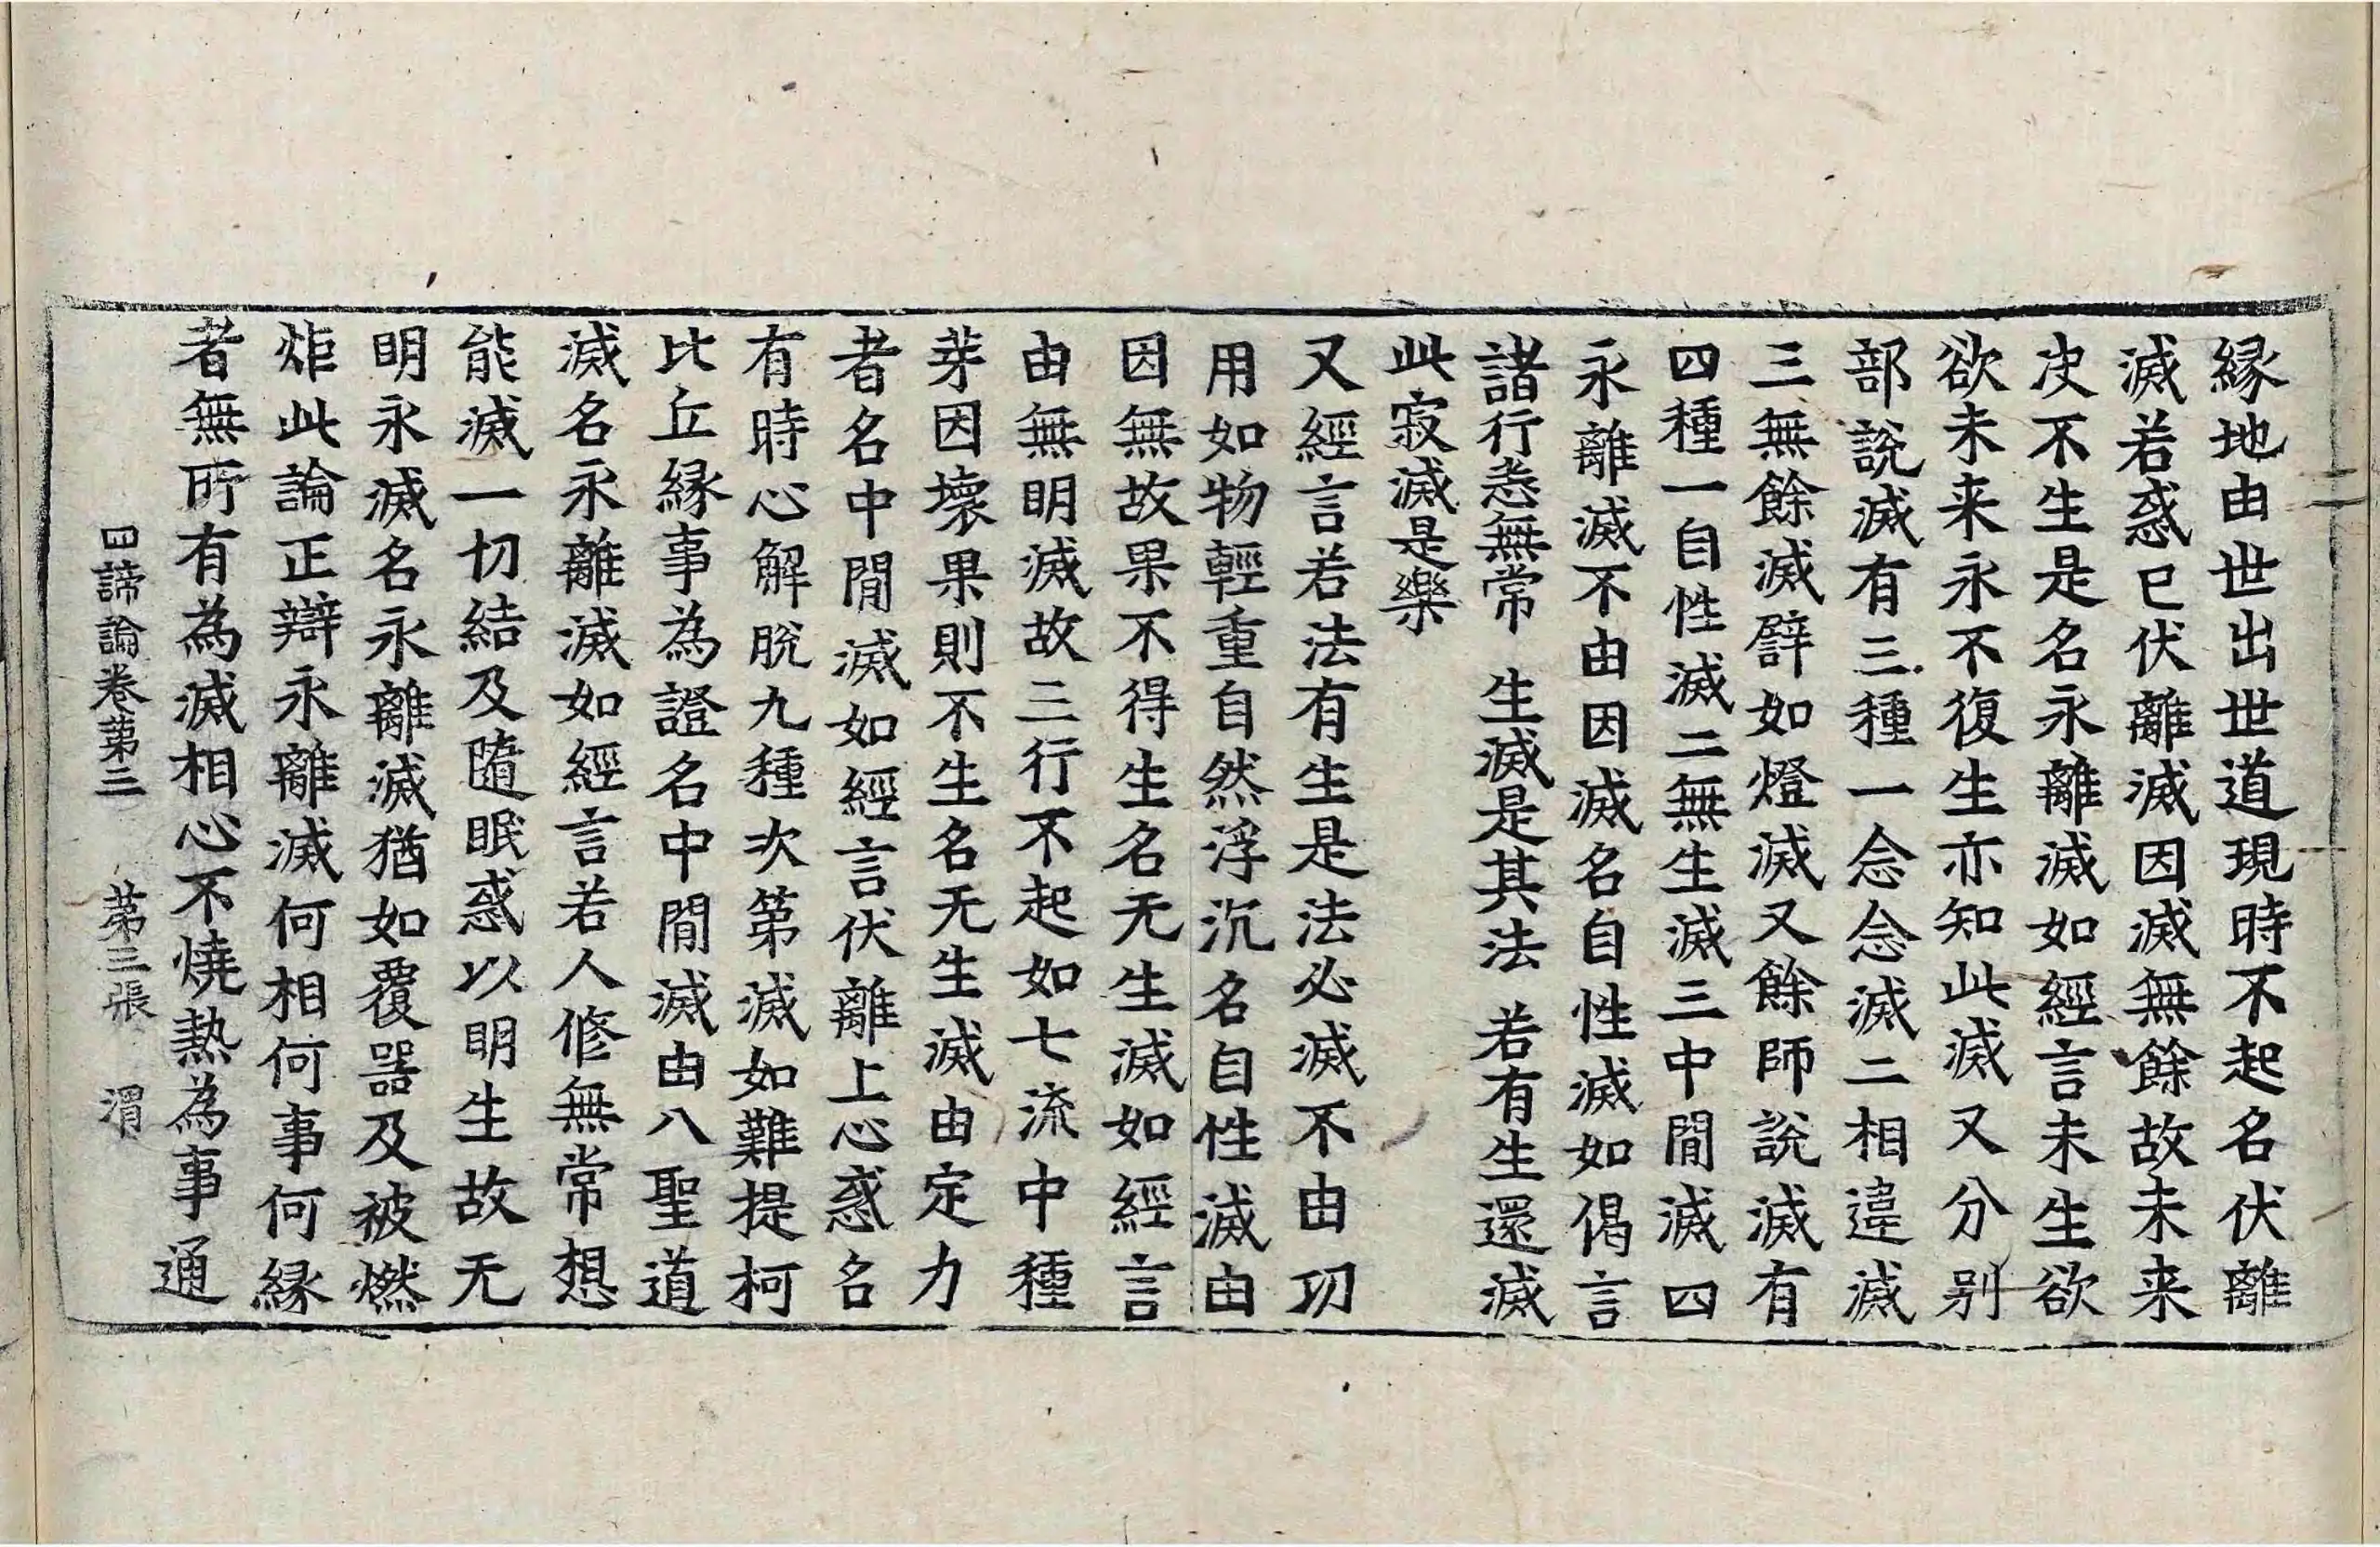 縁地由世出世道現時不起名伏離
滅若惑已伏離滅因滅無餘故未来
决不生是名永離滅如經言未生欲
欲未来永不復生亦知此滅又分别
部說滅有三種一念念滅二相違滅
三無餘滅譬如燈滅又餘師說滅有
四種一自性滅二無生滅三中閒滅四
永離滅不由因滅名自性滅如偈言
諸行悉無常　生滅是其法　若有生還滅
此寂滅是樂
又經言若法有生是法必滅不由功
用如物輕重自然浮沉名自性滅由
因無故果不得生名无生滅如經言
由無明滅故三行不起如七流中種
芽因壞果則不生名无生滅由定力
者名中閒滅如經言伏離上心惑名
有時心解脫九種次第滅如難提柯
比丘縁事為證名中閒滅由八聖道
滅名永離滅如經言若人修無常想
能滅一切結及隨眠惑以明生故无
明永滅名永離滅猶如覆器及被燃
炬此論正辯永離滅何相何事何縁
者無所有為滅相心不燒熱為事通
四諦論卷第三　第三張　渭